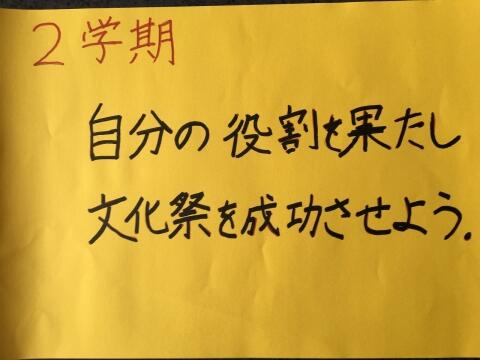 2学期
自分の役割を果たし
文化祭を成功させよう.